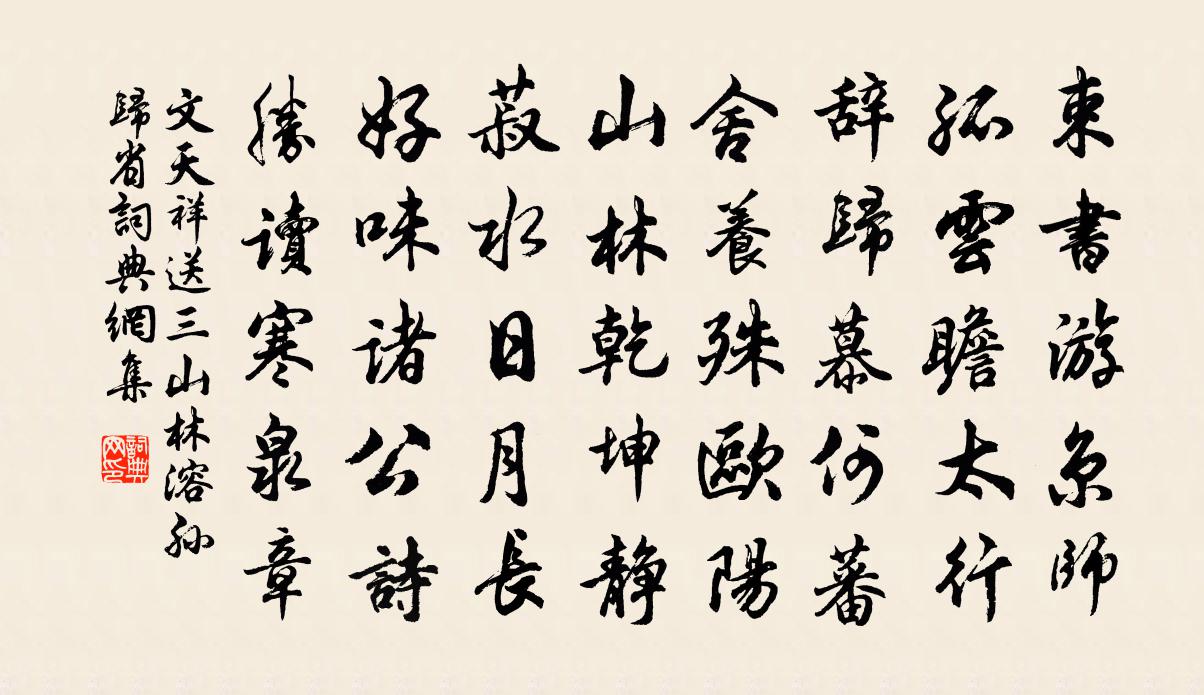 束書游京師
孤雲瞻太行
辞歸慕何蕃
舍養殊歐陽
山林乾坤静
菽水日月長
好味諸公詩
勝讀寒泉章
文天祥送三山林溶孙
歸省詞典網集
詞典网印